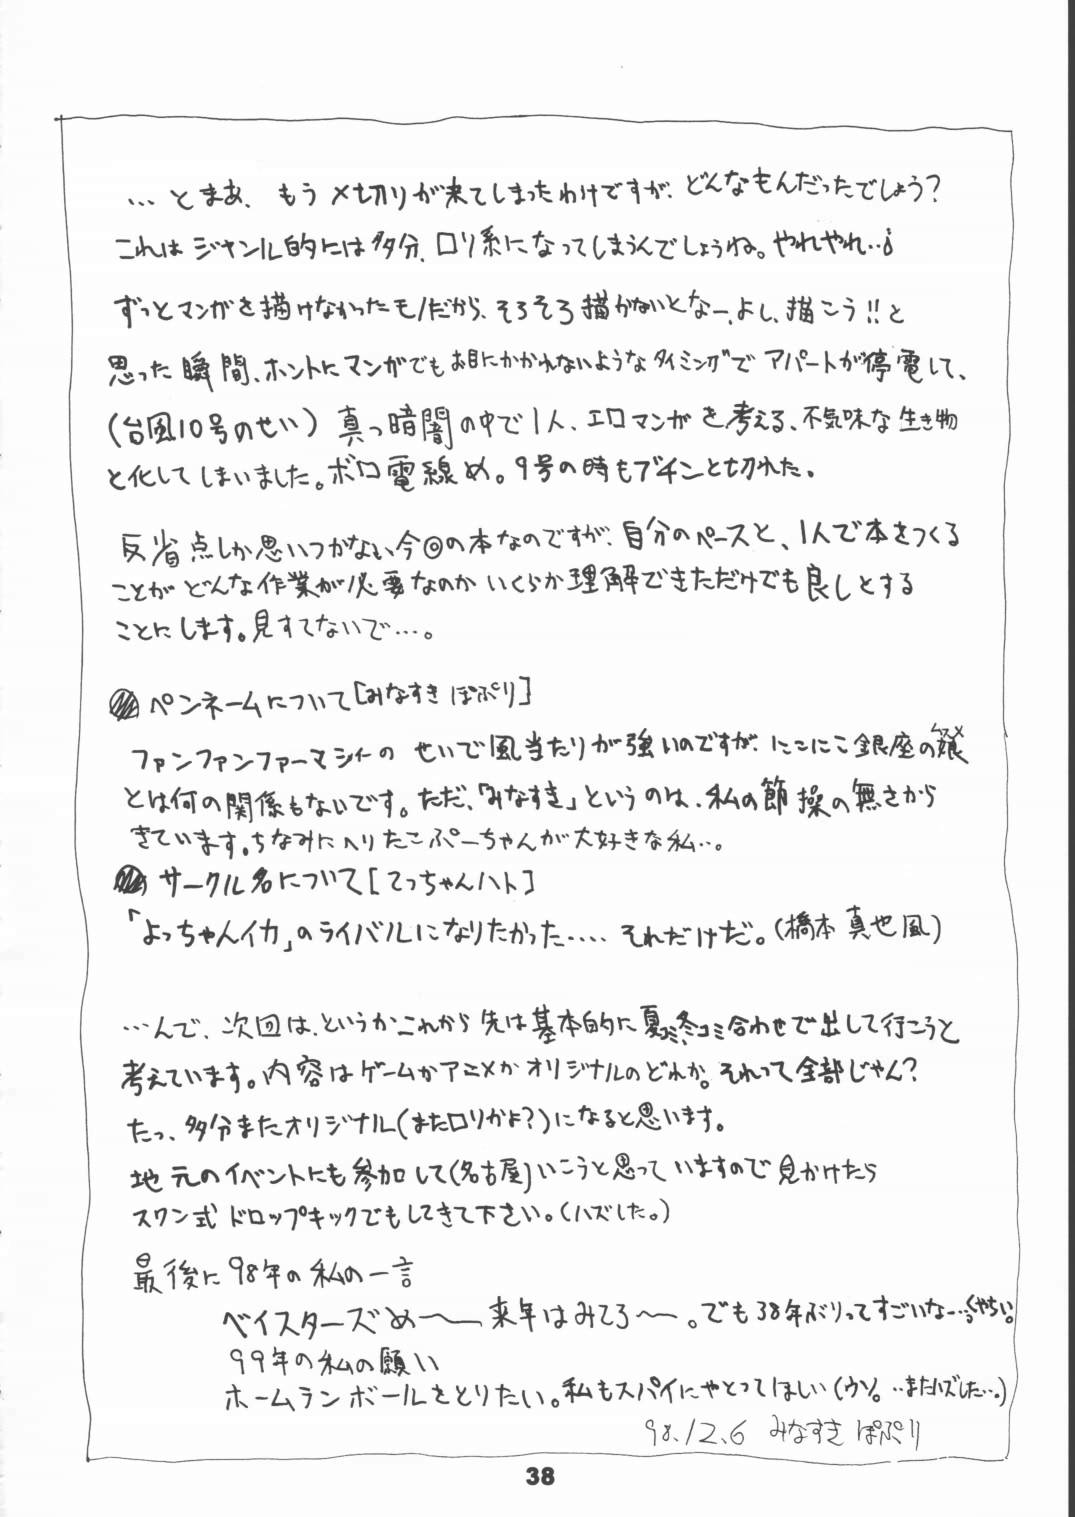 …とまぁ、もう〆切りが来てしまったわけですが、どんなもんだったでしょう？
これはジャンル的には多分、ロリ系になってしまうんでしょうね。やれやれ‥。
ずっとマンガを描けなかったモノだから、そろそろ描かないとなー、よし、描こう!!と
思った瞬間、ホントにマンガでもお目にかかれないようなタイミングでアパートが停電して、
(台風10号のせい)真っ暗闇の中で1人、エロマンガを考える、不気味な生き物
と化してしまいました。ボロ電線め。9号の時もブチンと切れた。
反省点しか思いつかない今回の本なのですが、自分のペースと、1人で本をつくる
ことがどんな作業が必要なのかいくらか理解できただけでも良しとする
ことにします。見すてないで…。
ペンネームについて[みなすき ぽぷり]
ファンファンファーマシィーのせいで風当たりが強いのですが、にこにこ銀座の娘ムスメ
とは何の関係もないです。ただ、「みなすき」というのは、私の節操の無さから
きています。ちなみにへりたこぷーちゃんが大好きな私‥。
サークル名について[てっちゃんハト]
「よっちゃんイカ」のライバルになりたかった‥‥それだけだ。(橋本真也風)
…んで、次回は、というかこれから先は基本的に夏コミ、冬コミ合わせで出して行こうと
考えています。内容はゲームかアニメかオリジナルのどれか。それって全部じゃん？
たっ、多分またオリジナル(またロリかよ?)になると思います。
地元のイベントにも参加して(名古屋)いこうと思っていますので見かけたら
スワン式ドロップキックでもしてきて下さい。(ハズした。)
最後に98年の私の一言
ベイスターズめ〜——来年はみてろ〜——。でも38年ぶりってすごいなー‥くやちい。
99年の私の願い
ホームランボールをとりたい。私もスパイにやとってほしい(ウソ。‥またハズした…。)
98.12.6 みなすき ぽぷり
38